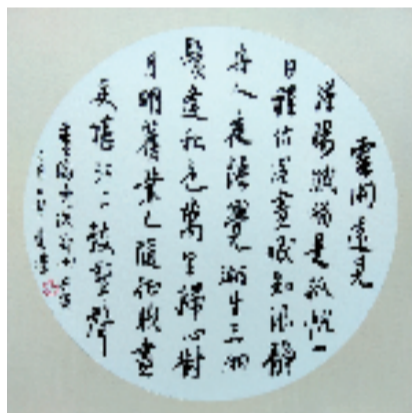 雲開遠見
漢陽城猶是孤帆一
日程估客晝眠知浪靜
舟人夜語覺潮生三湘
鬢逢秋色萬里歸心對
月明舊業已隨征戰盡
更堪江上鼓鼙聲